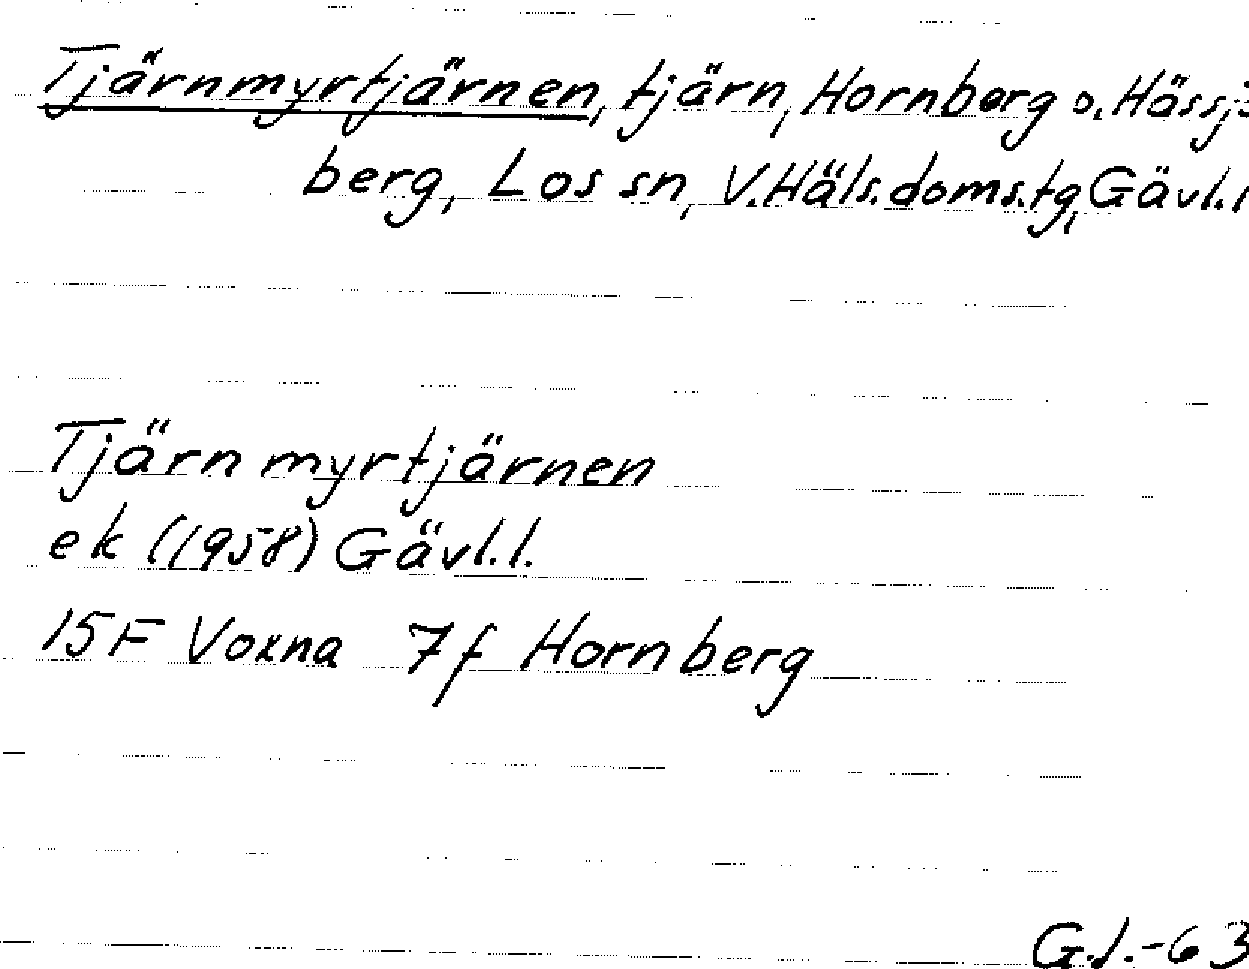 Tjärnmyrtjärnen, tjärn, Hornberg o. Hässjö-
berg, Los sn, V. Häls. doms. tg, Gävl. l
Tjärnmyrtjärnen
ek (1958) Gävl. l.
15F Voxna 7f Hornberg
G.J.-63